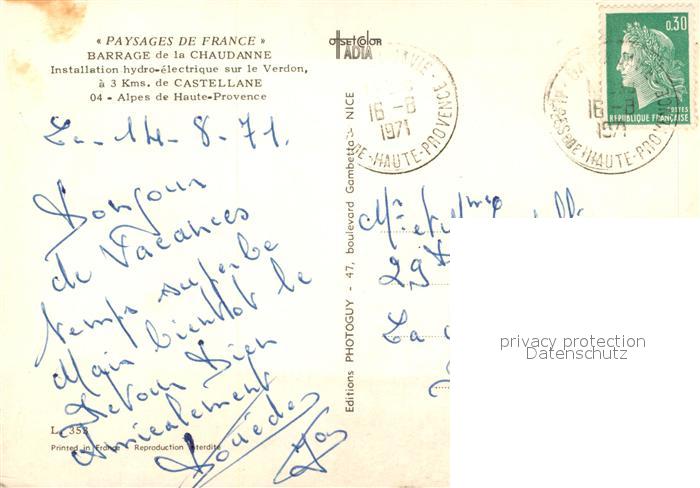 « PAYSAGES DE FRANCE »
BARRAGE de la CHAUDANNE
Installation hydro-électrique sur le Verdon,
à 3 Kms. de CASTELLANE
04 - Alpes de Haute-Provence
OFFSET COLOR
ADIA
0,30
POSTES
REPUBLIQUE FRANÇAISE
16-8
1971
DE-HAUTE-PROVENCE
16-8
1971
ALPES-DE-HAUTE-PROVENCE
Le 14-8-71.
Bonjour
de Vacances
temps superbe
Mais bientot le
Retour Bien
Amicalement
Editions PHOTOGUY - 47, boulevard Gambetta - NICE
Mr et Mme
29
La
privacy protection
Datenschutz
L. 353
Printed in France - Reproduction interdite